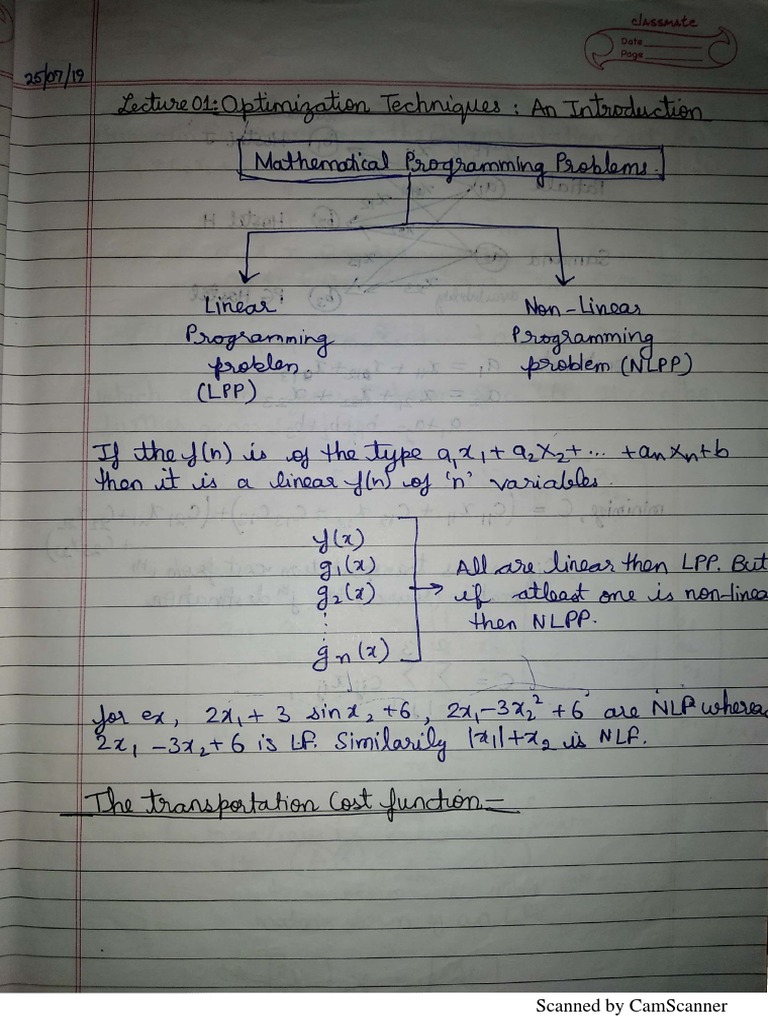 classmate
Date
Page
25/07/19
Lecture 01: Optimization Techniques: An Introduction
Mathematical Programming Problems.
Linear
Programming
problem.
(LPP)
Non-Linear
Programming
problem (NLPP)
If the f(n) is of the type a₁x₁ + a₂x₂ + ... + aₙxₙ + b
then it is a linear f(n) of 'n' variables.
f(x)
g₁(x)
g₂(x)
⋮
gₙ(x)
All are linear then LPP. But
if atleast one is non-linea
then NLPP.
for ex, 2x₁ + 3 sinx₂ + 6, 2x₁ - 3x₂² + 6 are NLP wherea
2x₁ - 3x₂ + 6 is LF. Similarily |x₁| + x₂ is NLF.
The transportation Cost function -
Scanned by CamScanner